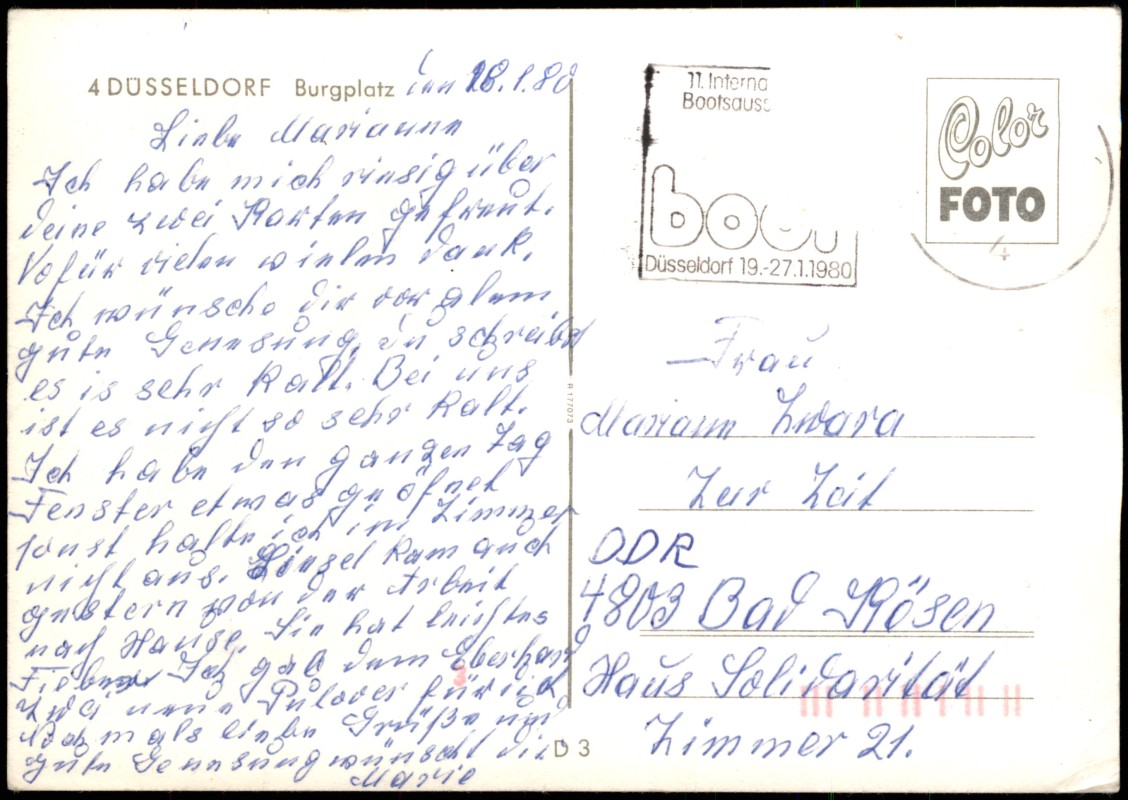 4 DÜSSELDORF Burgplatz den 18.1.80
Liebe Marianne
Ich habe mich riesig über
deine zwei Karten gefreut.
Vofür vielen vielen dank.
Ich wünsche dir vor alem
gute Genesung, du schreibst
es is sehr kalt. Bei uns
ist es nicht so sehr kalt.
Ich habe den ganzen Tag
Fenster etwas geöfnet
sonst halte ich im Zimmer
nicht aus. Liesel kam auch
gestern von der Arbeit
nach Hause. Sie hat leichtes
Fieber Ich gab dem Eberhard
zwei neue Pulover für dich
Nochmals liebe Grüße und
gute Genesung wünscht dir
Marie
11. Interna
Bootsauss
boot
Düsseldorf 19.-27.1.1980
Color
FOTO
4
R 177073
Frau
Mariann Zwara
Zur Zeit
DDR
4803 Bad Kösen
Haus Solidarität
Zimmer 21.
D 3
3